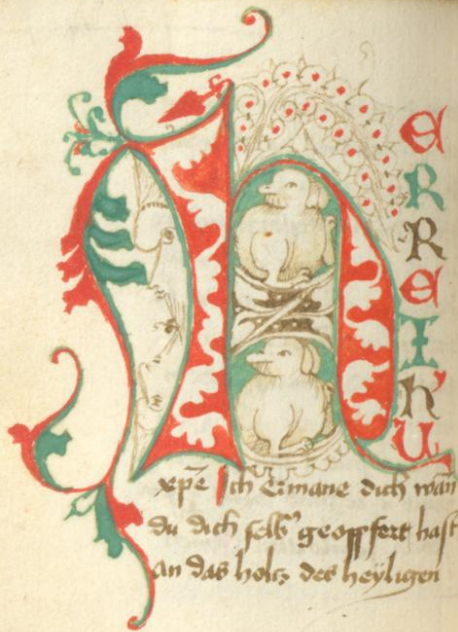 HERRE IhU
xp̄e Ich Ermane dich wan
du dich selb' geopffert hast
an das holcz des heÿligen